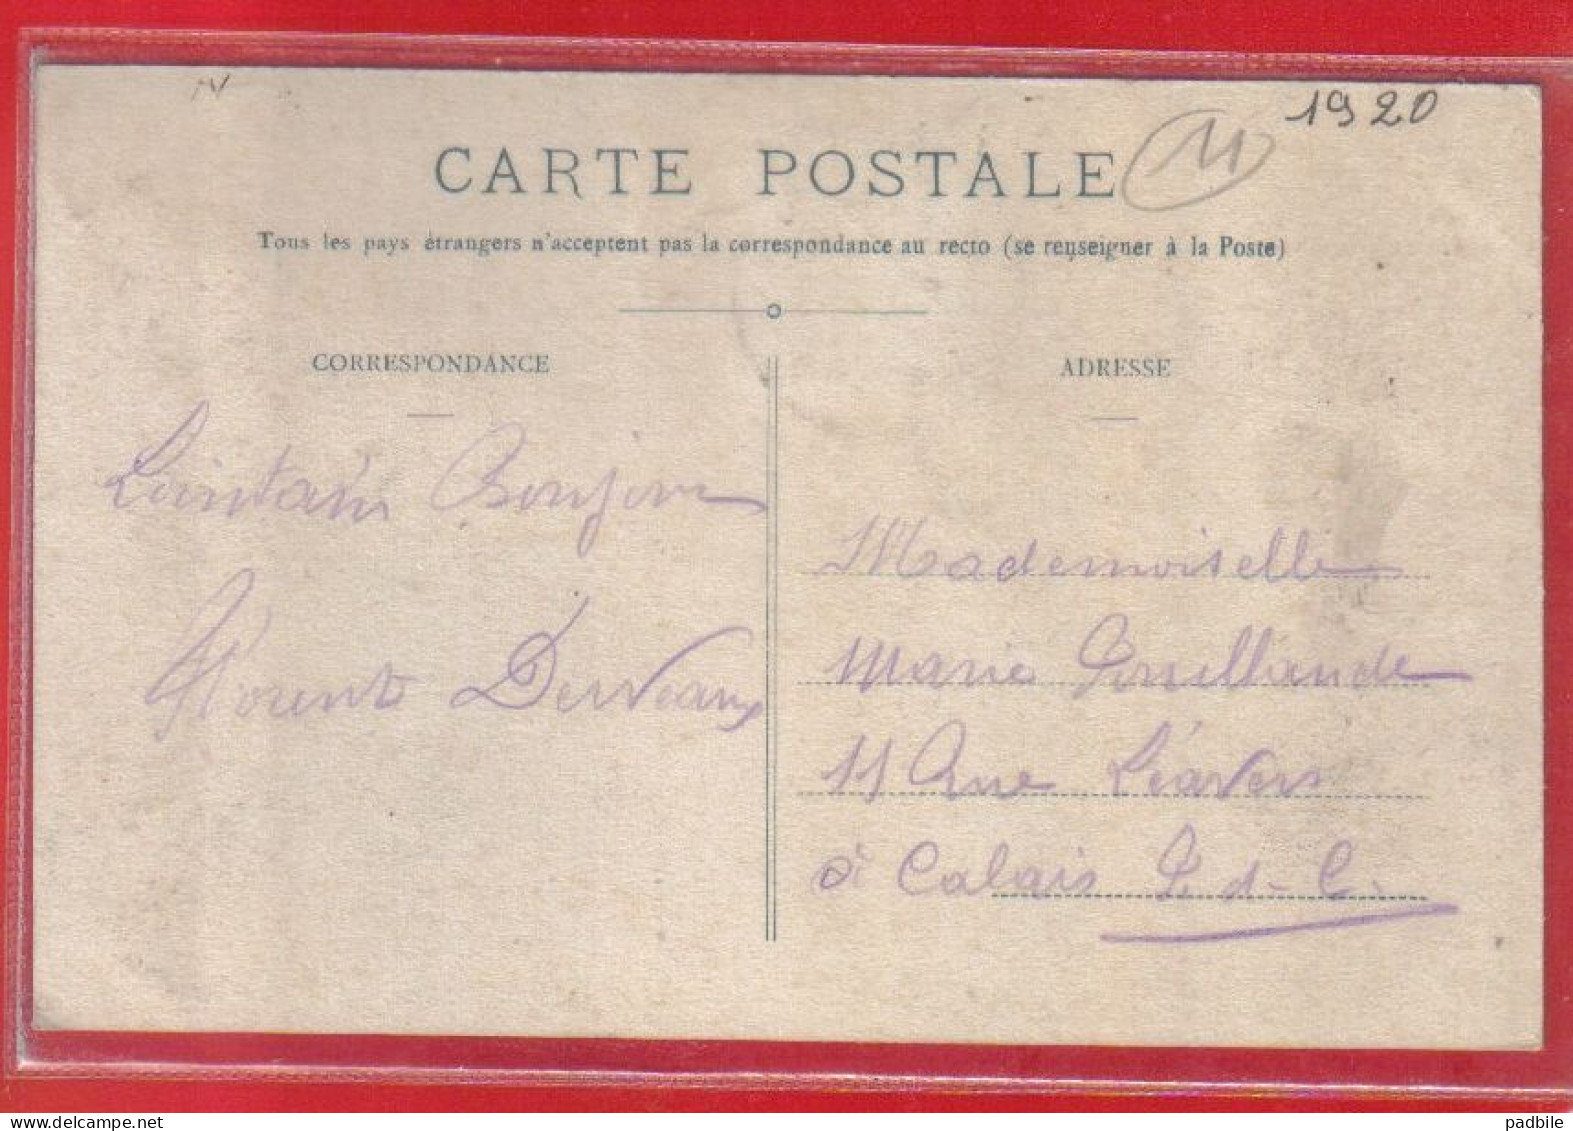 1920
11
CARTE POSTALE
Tous les pays étrangers n'acceptent pas la correspondance au recto (se renseigner à la Poste)
CORRESPONDANCE
ADRESSE
Lointain Bonjour
Florent Derveaux
Mademoiselle
Marie
11 Rue
à Calais P.-d-C.
padbile